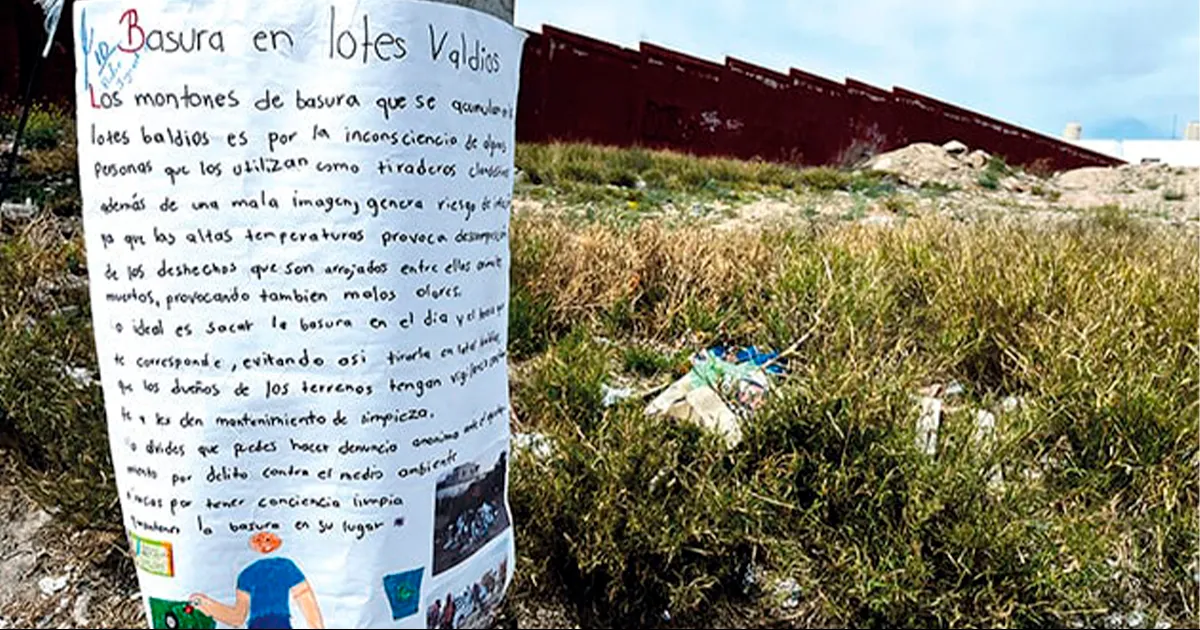 Basura en lotes Valdios
Los montones de basura que se
lotes baldios es por la inconsciencio de
personas que los utilizan como tiraderos
además de una mala imagen, genera riesgo de
ya que las altas temperaturas provoca
de los deshechos que son arrojados entre ellos
muertos, provocando tambien malos olores.
ideal es sacar la basura en el dia y el
te corresponde, evitando asi tirarla en
que los dueños de los terrenos tengan
y les den mantenimiento de limpieza.
olvides que puedes hacer denuncio anonimo
por delito contra el medio ambiente
por tener conciencia limpia
la basura en su lugar